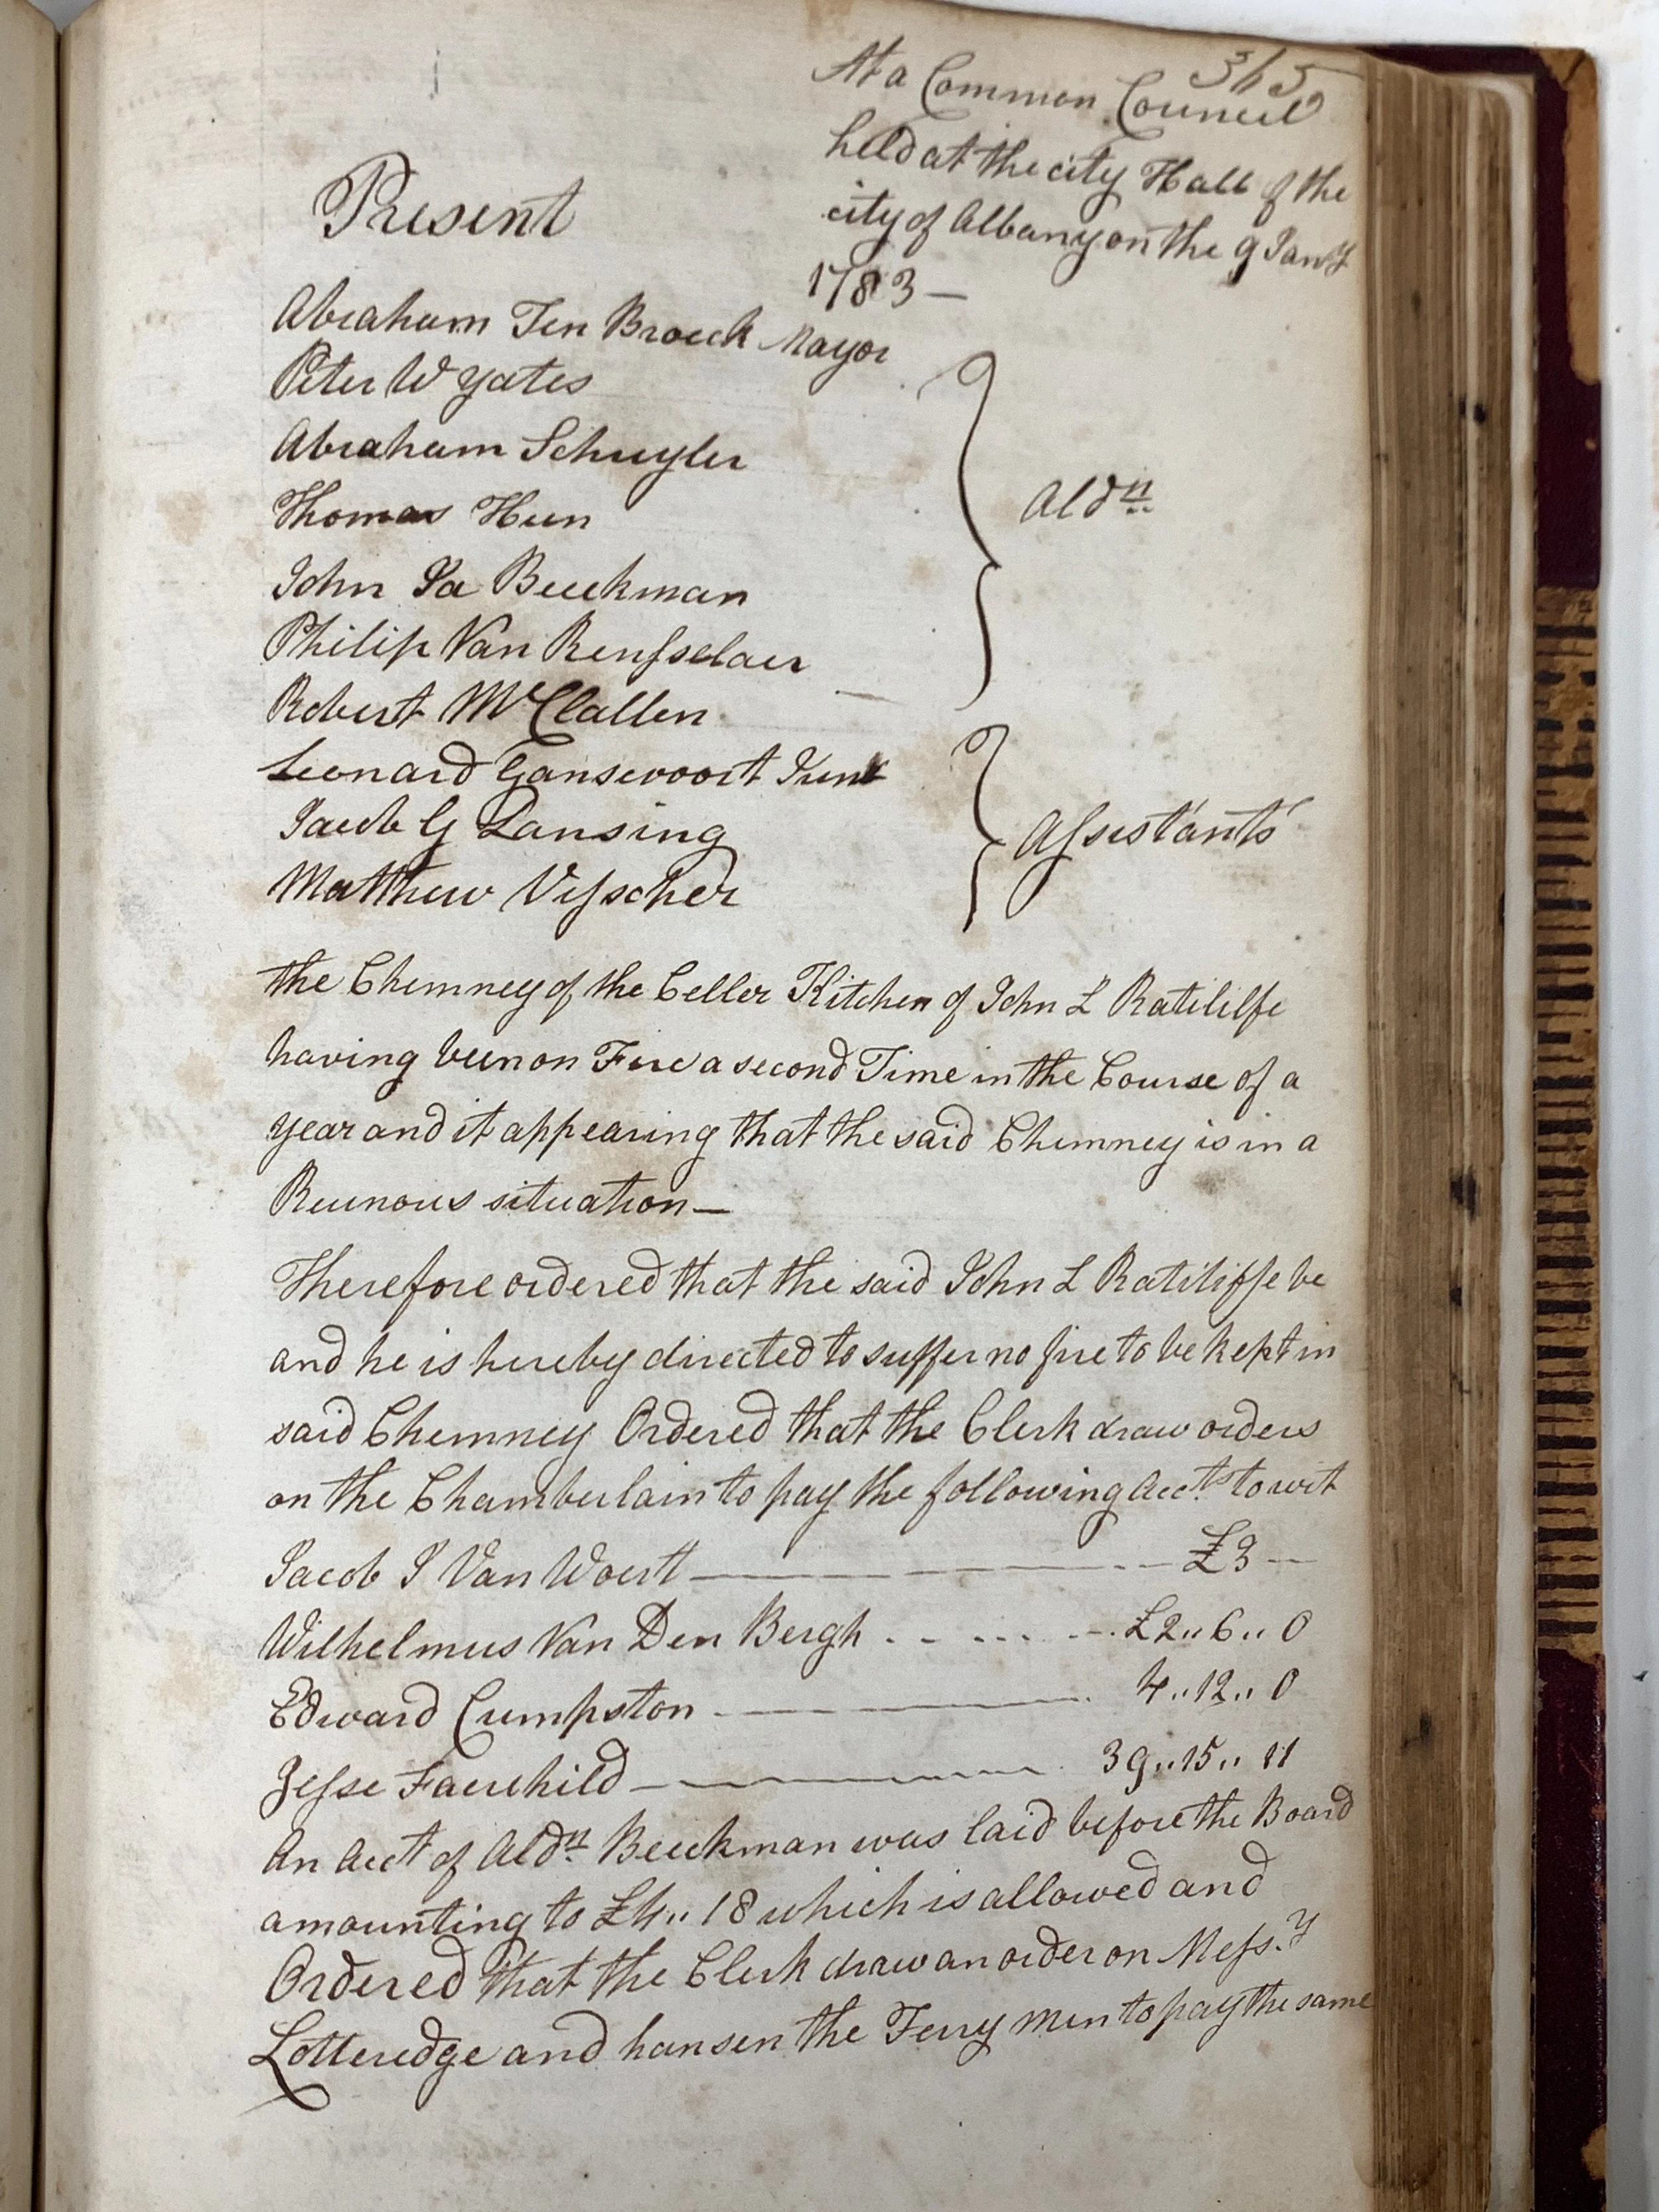 365
At a Common Council
held at the city Hall of the
city of Albany on the 9 Jany
1783 —
Present
Abraham Ten Broeck Mayor
Peter W Yates
Abraham Schuyler
Thomas Hun
John Ja Beeckman
Philip Van Rensselaer
Aldn
Robert McClallen
Leonard Gansevoort Junr
Jacob G Lansing
Matthew Visscher
Assistants
the Chemney of the Celler Kitchen of John L Ratilife
having been on Fire a second Time in the Course of a
year and it appearing that the said Chemney is in a
Reunous situation —
Therefore ordered that the said John L Ratiliffe be
and he is hereby directed to suffer no fire to be kept in
said Chemney Ordered that the Clerk draw orders
on the Chamberlain to pay the following Accts to wit
Jacob J Van Woert — £3 —
Wilhelmus Van Den Bergh . . . . . £2..6..0
Edward Cumpston — 4..12..0
Jesse Fairchild — 39..15..11
An Acct of Aldn Beeckman was laid before the Board
amounting to £4..18 which is allowed and
Ordered that the Clerk draw an order on Messy
Lotteredge and hansen the Ferry men to pay the same